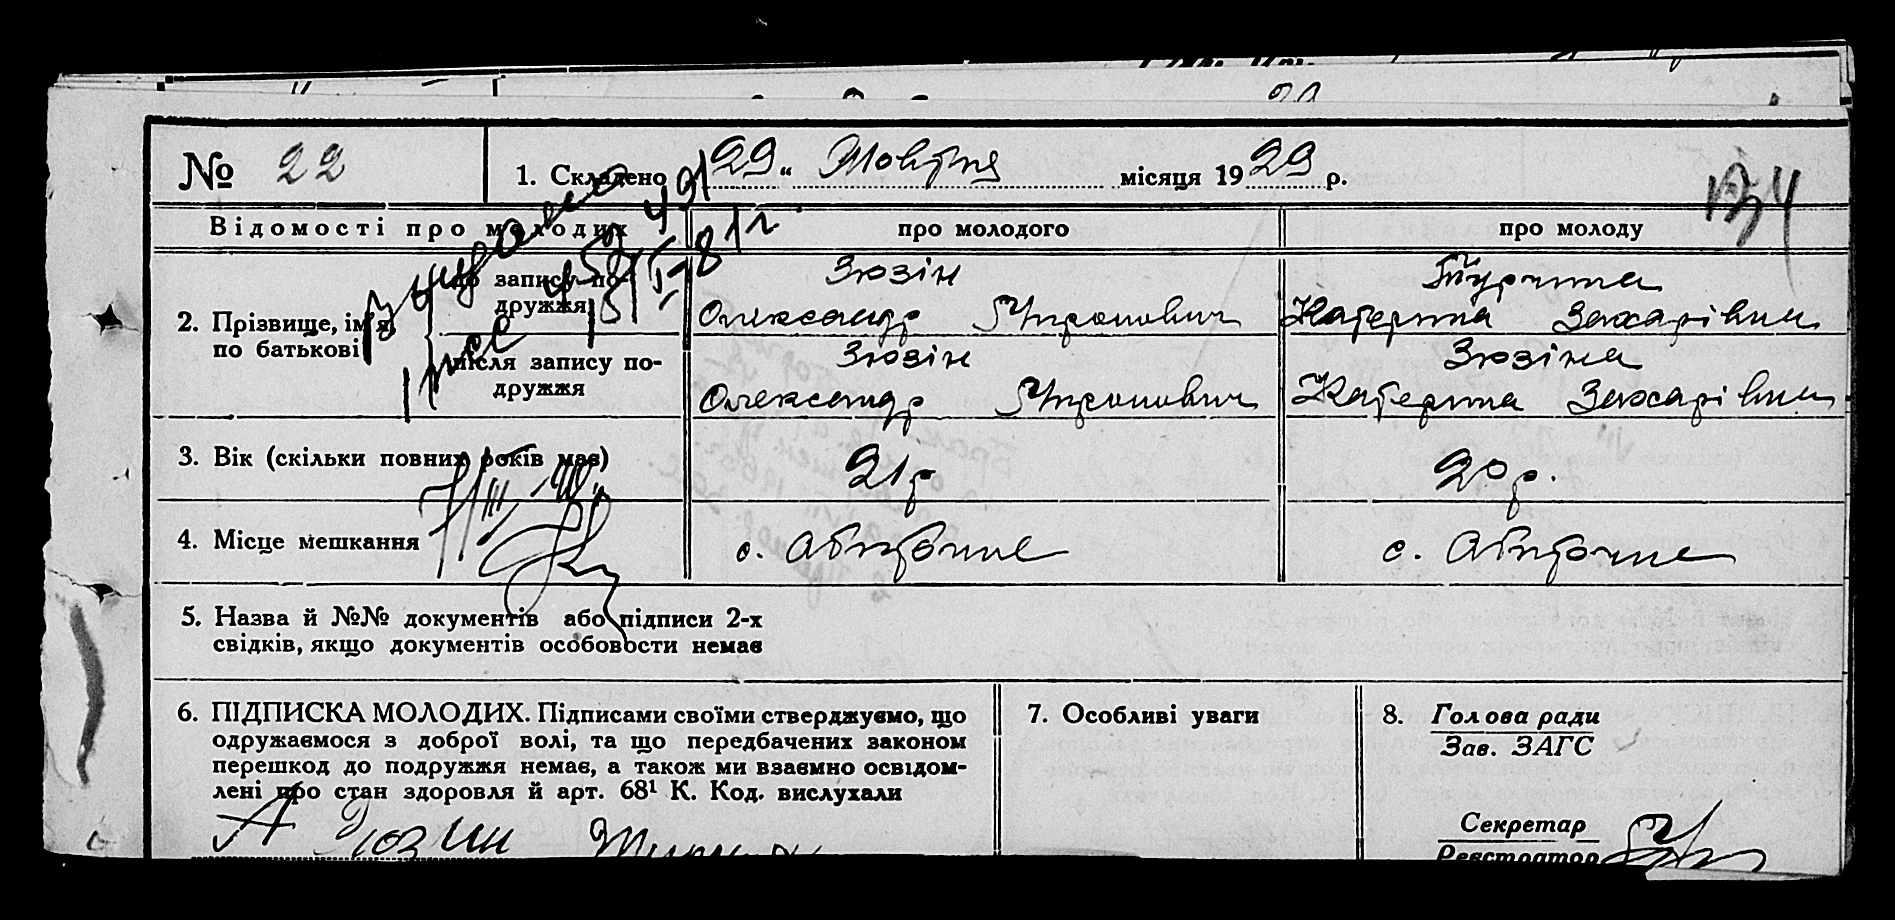 № 22
1. Складено „29“ Жовтня місяця 1929 р.
Відомості про молодих
про молодого
про молоду
2. Прізвище, ім'я, по батькові
до запису подружжя
Зюзін
Олександр Митронович
Турчина
Катерина Захарівна
після запису подружжя
Зюзін
Олександр Митронович
Зюзіна
Катерина Захарівна
3. Вік (скільки повних років має)
21 р
20 р.
4. Місце мешкання
с.
с.
5. Назва й №№ документів або підписи 2-х
свідків, якщо документів особовости немає
6. ПІДПИСКА МОЛОДИХ. Підписами своїми стверджуємо, що
одружаємося з доброї волі, та що передбачених законом
перешкод до подружжя немає, а також ми взаємно освідом-
лені про стан здоровля й арт. 68¹ К. Код. вислухали
А Зюзин
7. Особливі уваги
8. Голова ради
Зав. ЗАГС
Секретар
Реєстратор